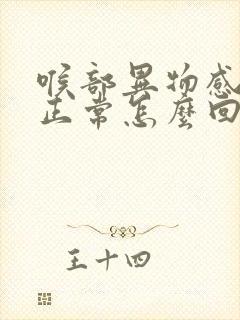 喉部異物感
正常怎麼回
王十四